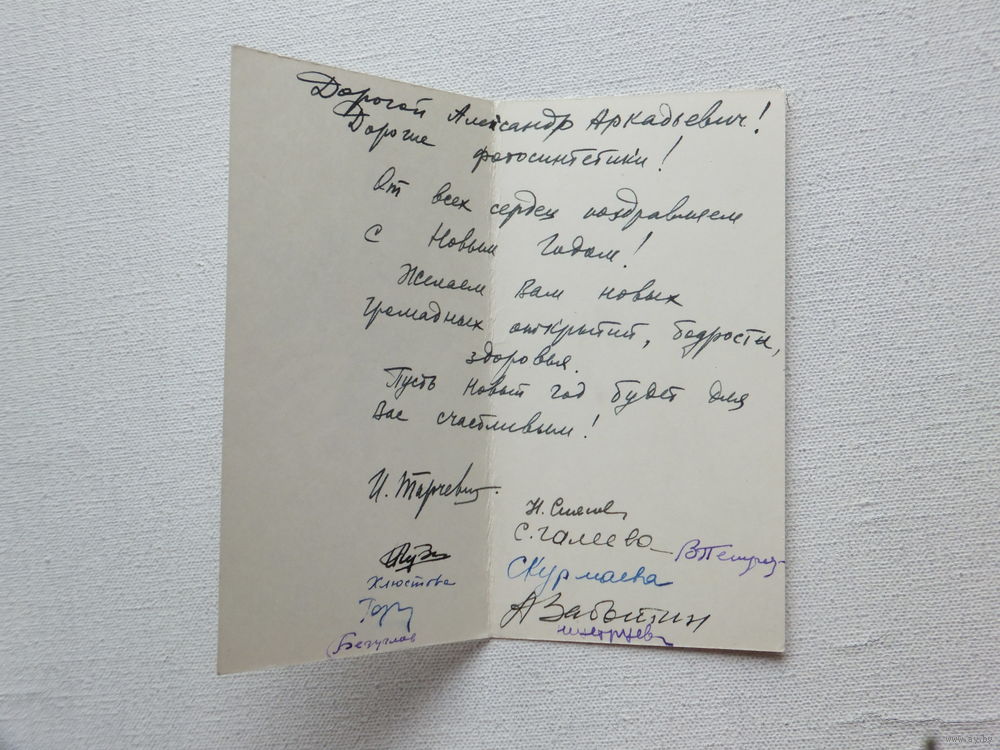 Дорогой Александр Аркадьевич!
Дорогие фотосинтетики!
От всех сердец поздравляем
с Новым Годом!
Желаем Вам новых
громадных открытий, бодрости,
здоровья.
Пусть Новый год будет для
Вас счастливым!
И. Тарчевс
С. Галеева
Хлюстова
СКурмаева
АЗаботин
Безуглов
www.ay.by